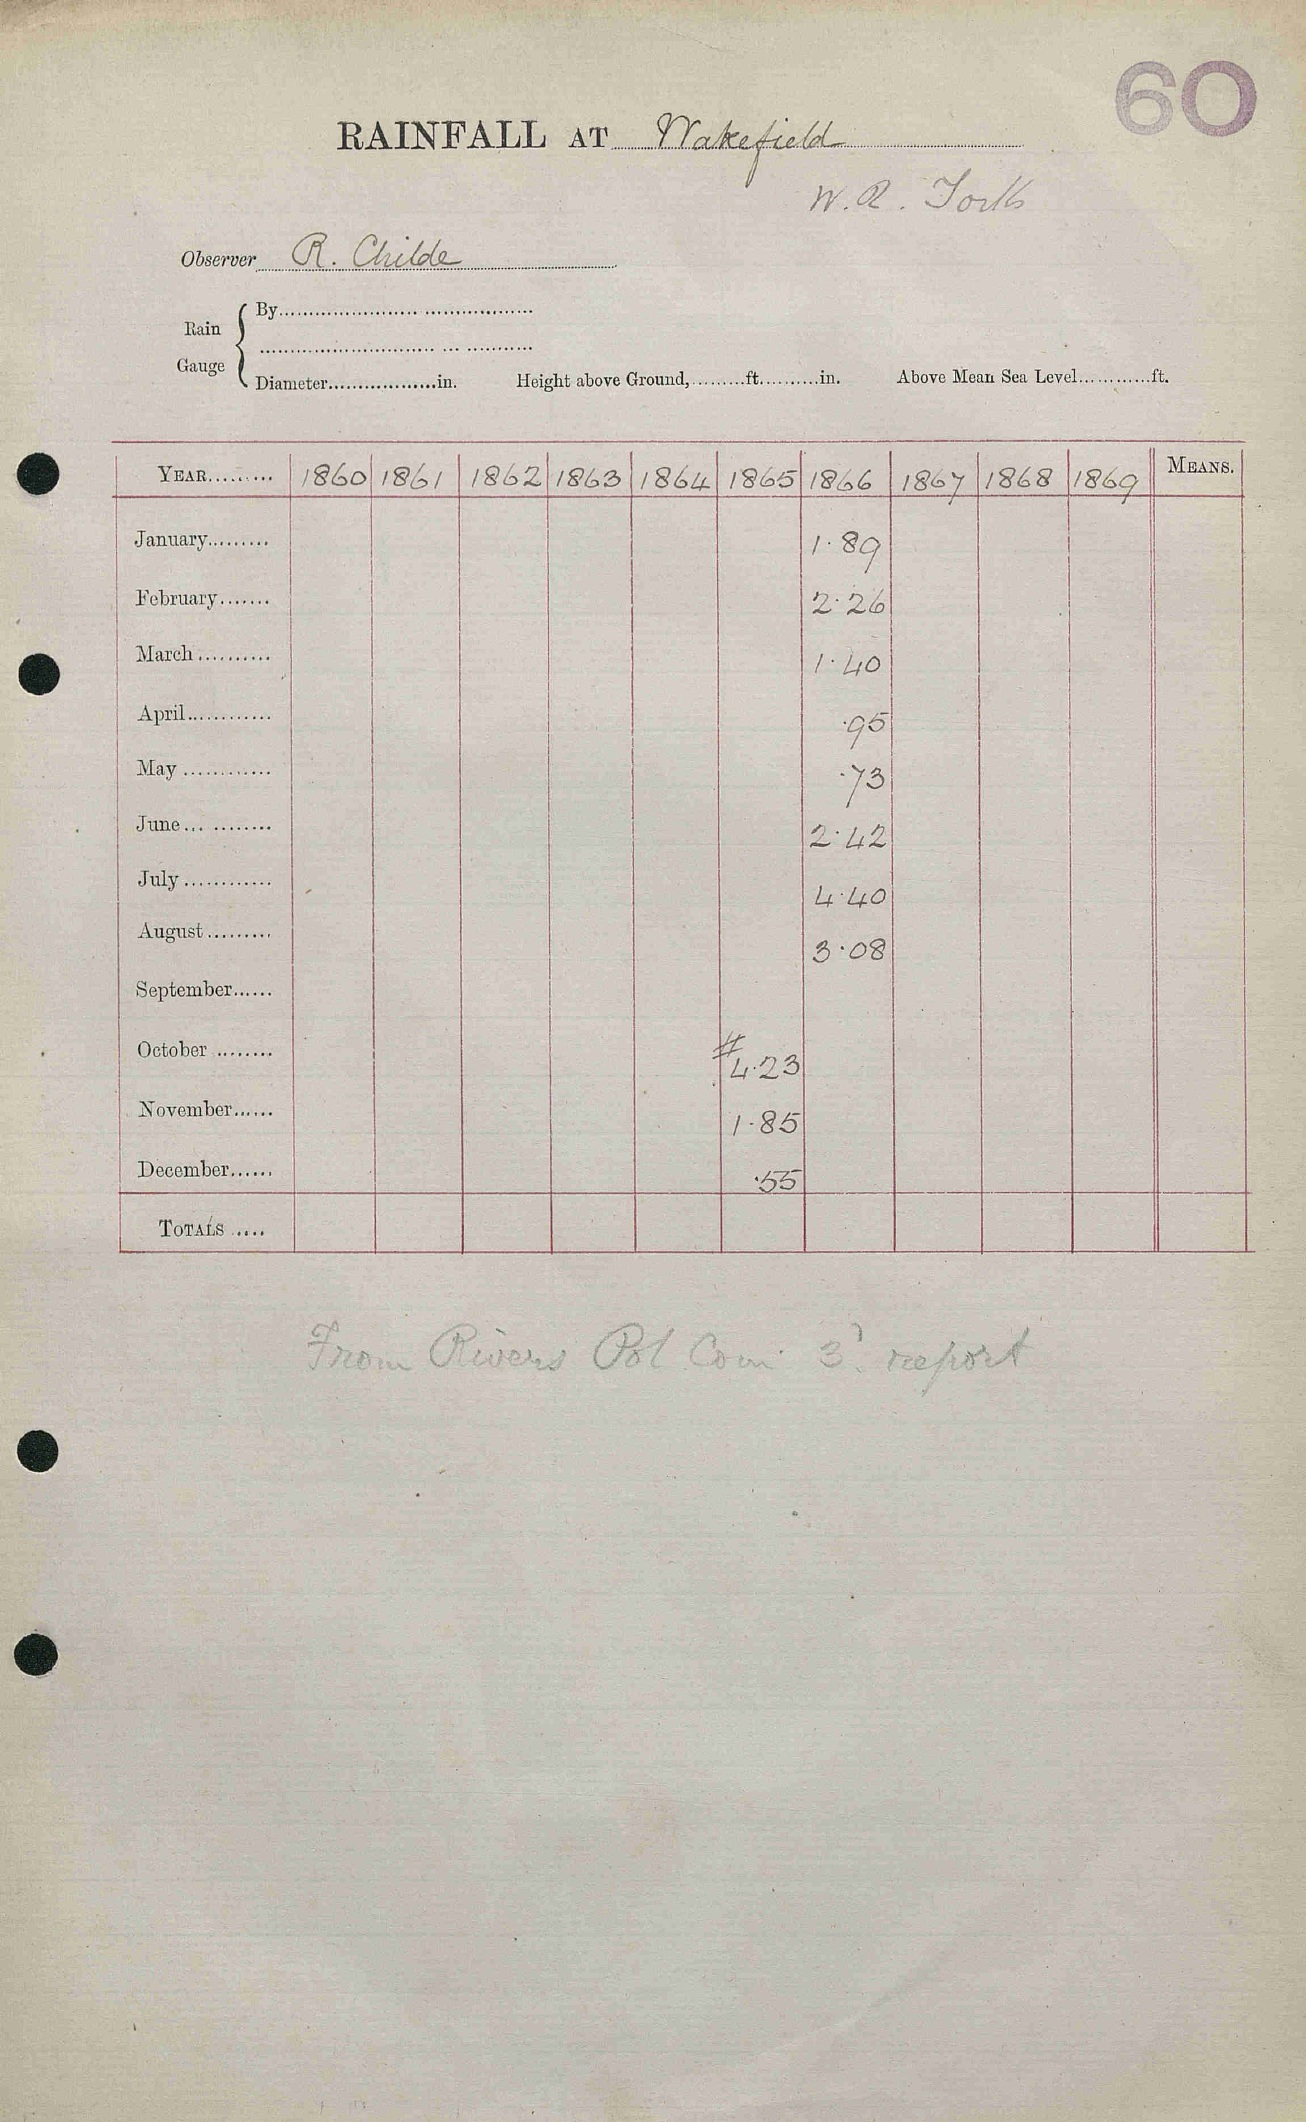 60
RAINFALL AT Wakefield
W. R. Yorks
Observer R. Childe
Rain Gauge { By
Diameter in. Height above Ground, ft. in. Above Mean Sea Level ft.
YEAR 1860 1861 1862 1863 1864 1865 1866 1867 1868 1869 MEANS.
January 1.89
February 2.26
March 1.40
April .95
May .73
June 2.42
July 4.40
August 3.08
September
October # 4.23
November 1.85
December .55
TOTALS
From Rivers Pol Com 3d report